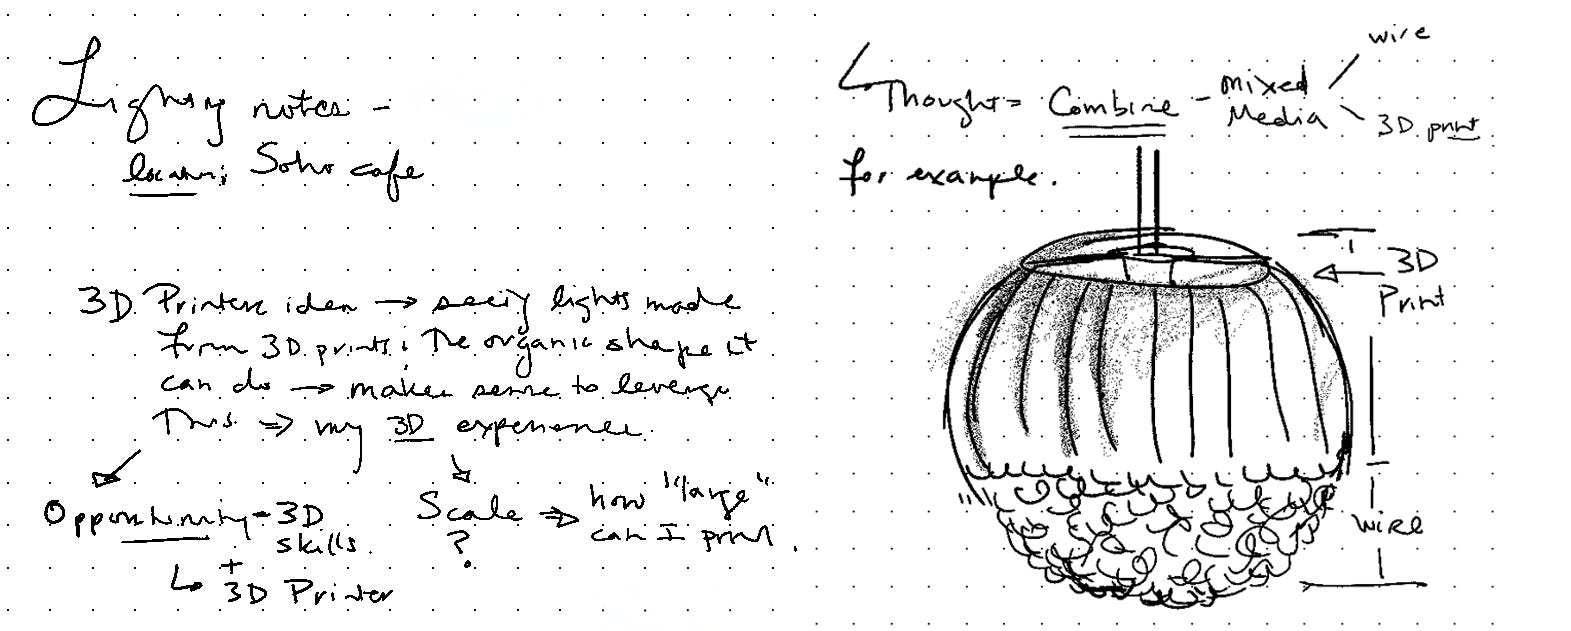 Lighting notes -
location; Soho cafe
3D Printer idea → seeing lights made
from 3D prints; The organic shape it
can do → makes sense to leverage
This ⇒ my 3D experience.
Opportunity - 3D
skills.
+
3D Printer
Scale ⇒ how "large"
? can I print.
Thought = Combine - mixed
Media
wire
3D print
for example.
3D
Print
wire